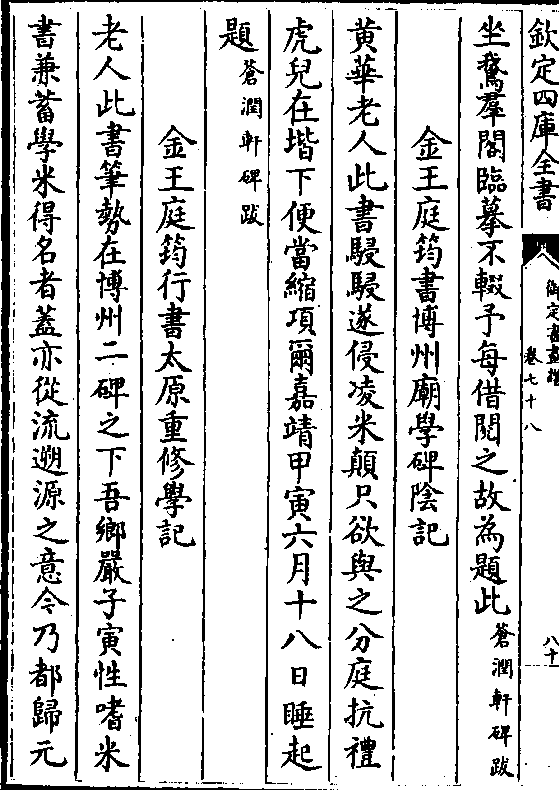 欽定四庫全書
御定書畫譜
卷七十八
八十
坐鵞羣閣臨摹不輟予每借閱之故為題此蒼潤軒碑跋
金王庭筠書博州廟學碑陰記
黃華老人此書駸駸遂侵凌米顛只欲與之分庭抗禮
虎兒在堦下便當縮項爾嘉靖甲寅六月十八日睡起
題蒼潤軒碑跋
金王庭筠行書太原重修學記
老人此書筆勢在博州二碑之下吾鄉嚴子寅性嗜米
書兼蓄學米得名者蓋亦從流遡源之意今乃都歸元